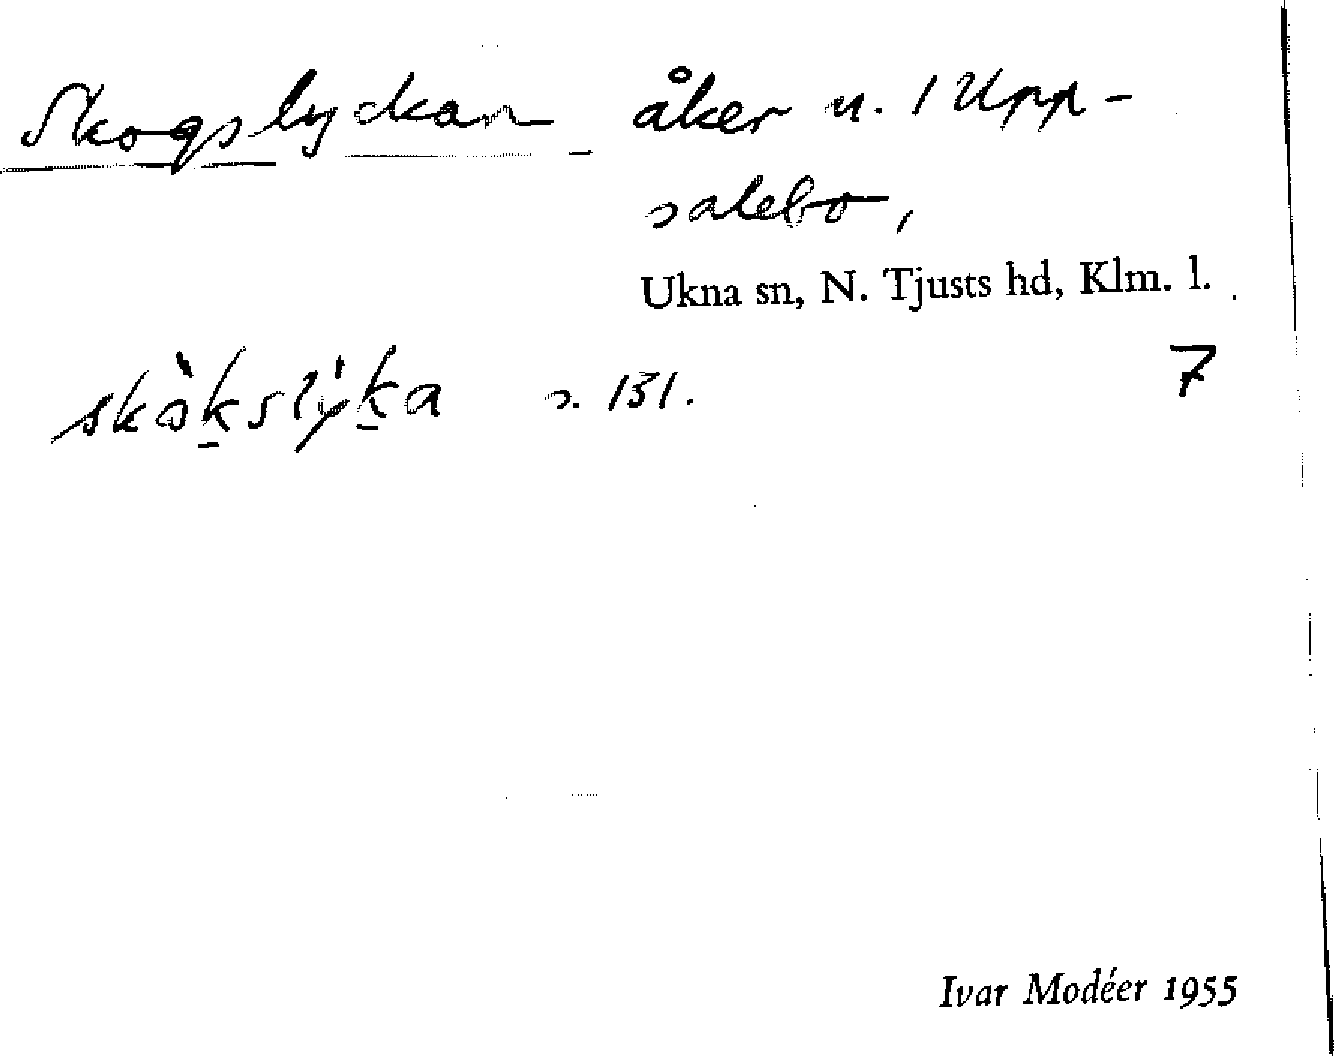 Skogslyckan åker u. 1 Upp-
salebo,
Ukna sn, N. Tjusts hd, Klm. l.
skò̱kslý̱ka s. 131. 7
Ivar Modéer 1955